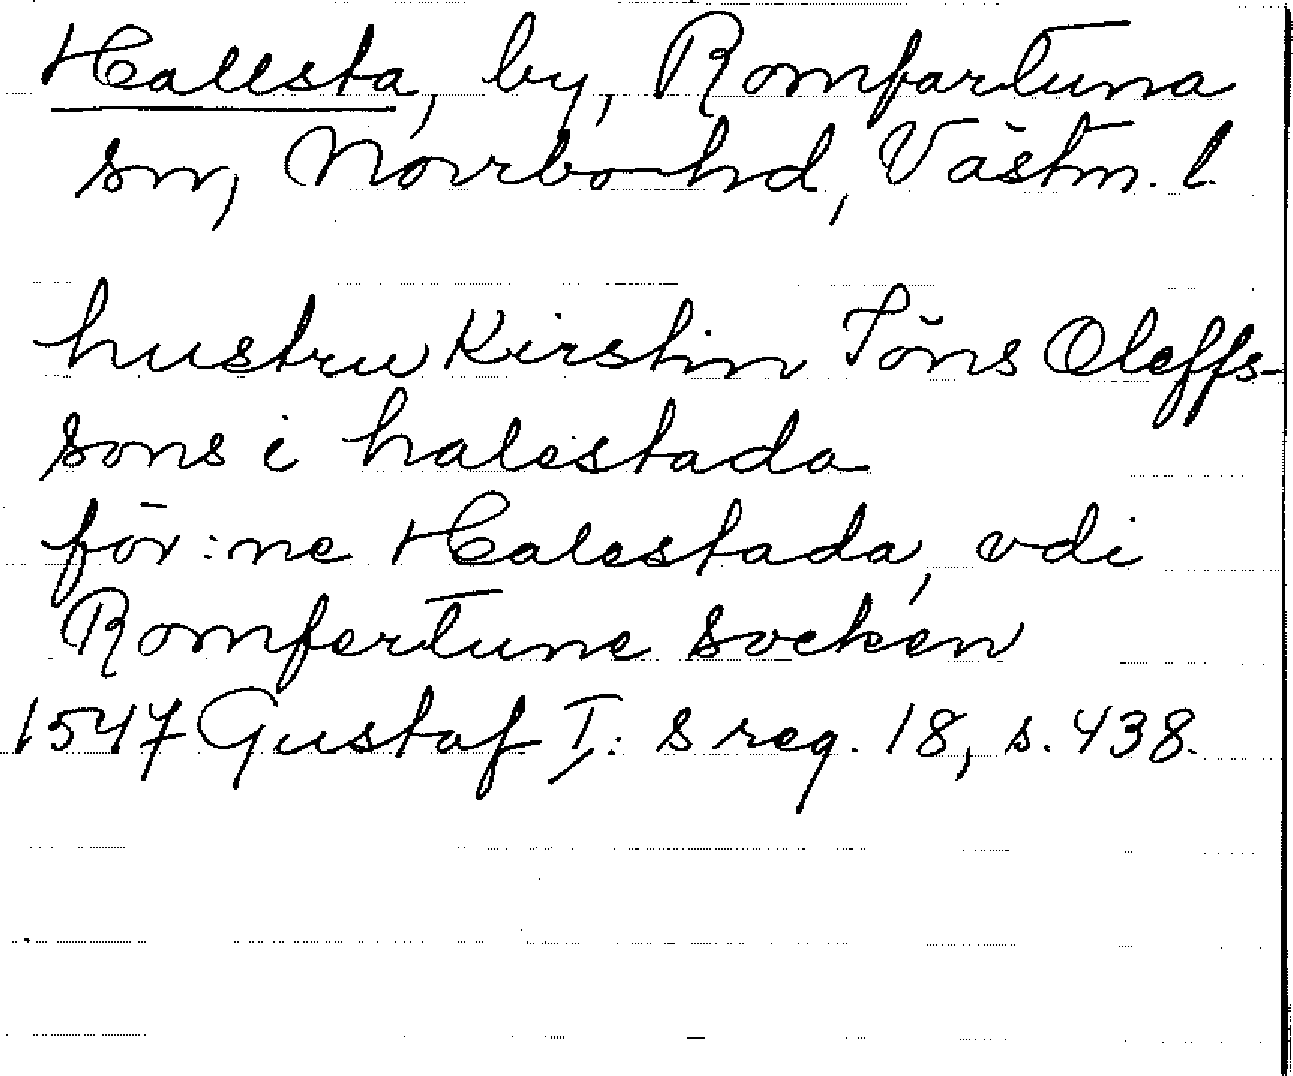 Hallsta, by, Romfartuna
sn, Norrbo hd, Västm. l.
hustru Kirstin Jöns Oleffs-
sons i halestada
för:ne Halestada, vdi
Romfertune socken
1547 Gustaf I:s reg. 18, s. 438.